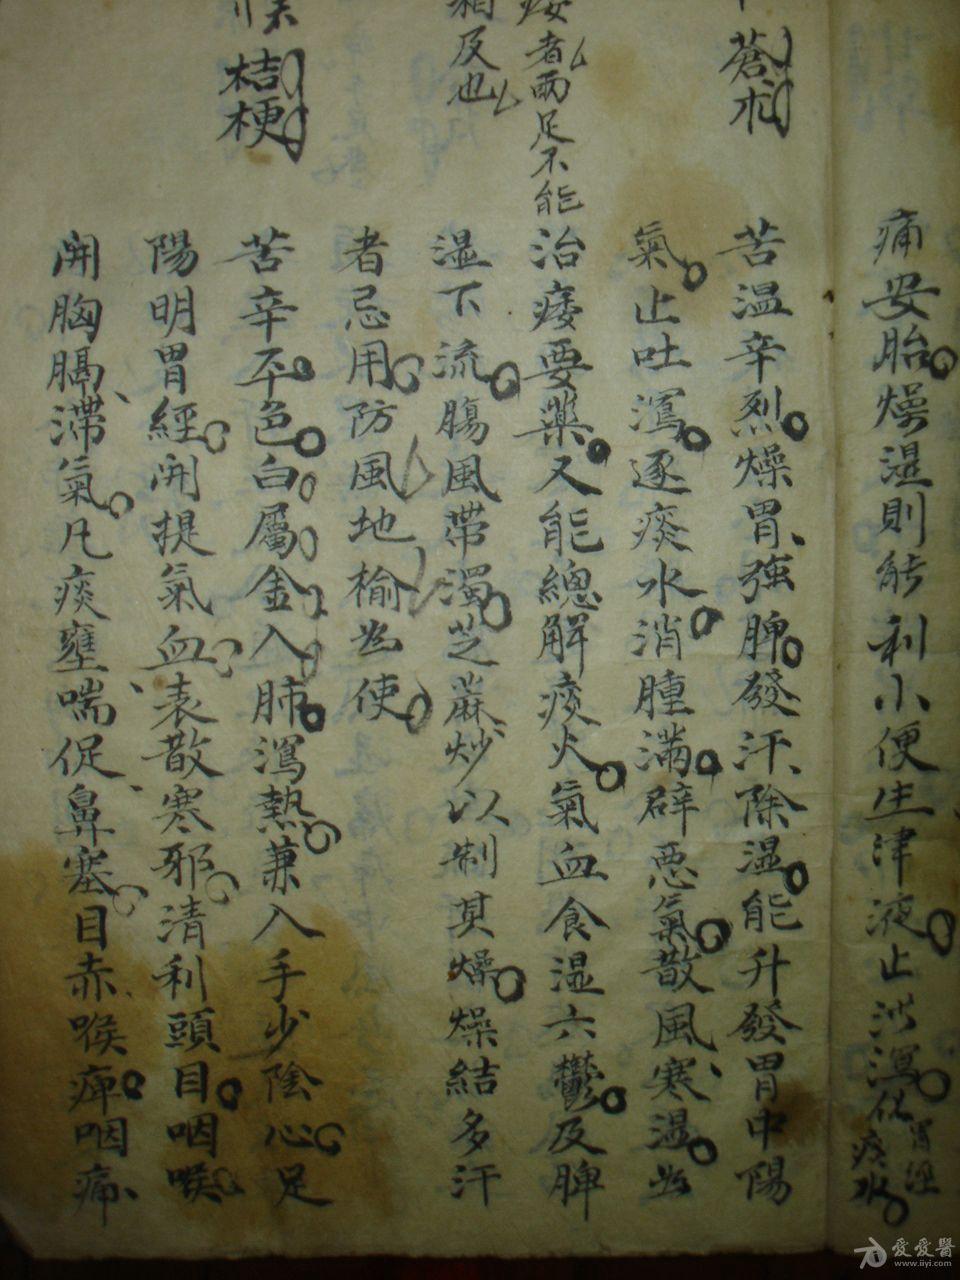 痛安胎。燥湿則能利小便生津液。止泄瀉。化胃經痰水。
蒼朮
苦温辛烈。燥胃、強脾。發汗、除湿。能升發胃中陽
氣。止吐瀉。逐痰水。消腫滿。辟悪氣。散風寒、湿。為
痿者両足不能
治痿要薬。又能總解痰火。氣血食湿六鬱。及脾
相及也
湿下流。腸風帯濁。芝蔴炒以制其燥。燥結多汗
者忌用。防風地榆為使。
桔梗
苦辛平。色。白屬金入肺。瀉熱。兼入手少陰心。足
陽明胃經。開提氣血。表散寒邪。清利頭目。咽喉。
開胸膈、滞氣。凡痰壅喘促、鼻塞。目赤喉痺。咽痛、
愛愛醫
www.iiyi.com